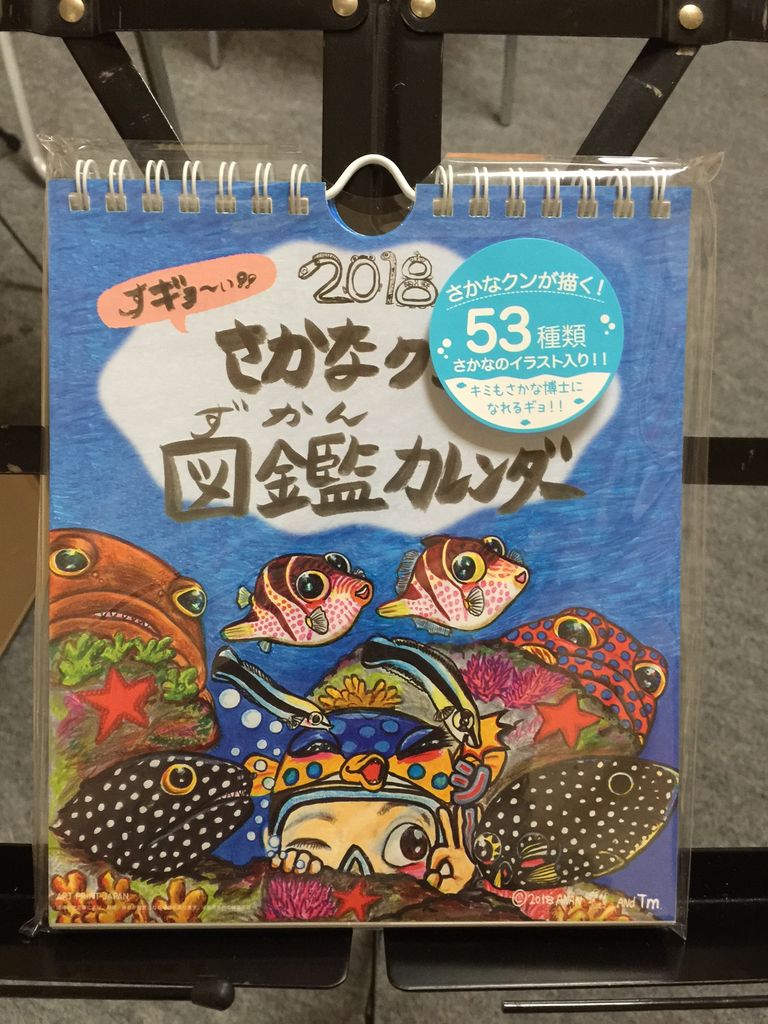 すギョ〜い!!
2018
さかなク
ずかん
図鑑カレンダー
さかなクンが描く!
53種類
さかなのイラスト入り!!
キミもさかな博士に
なれるギョ!!
ART PRINT JAPAN
©2018 ANAN AND Tm